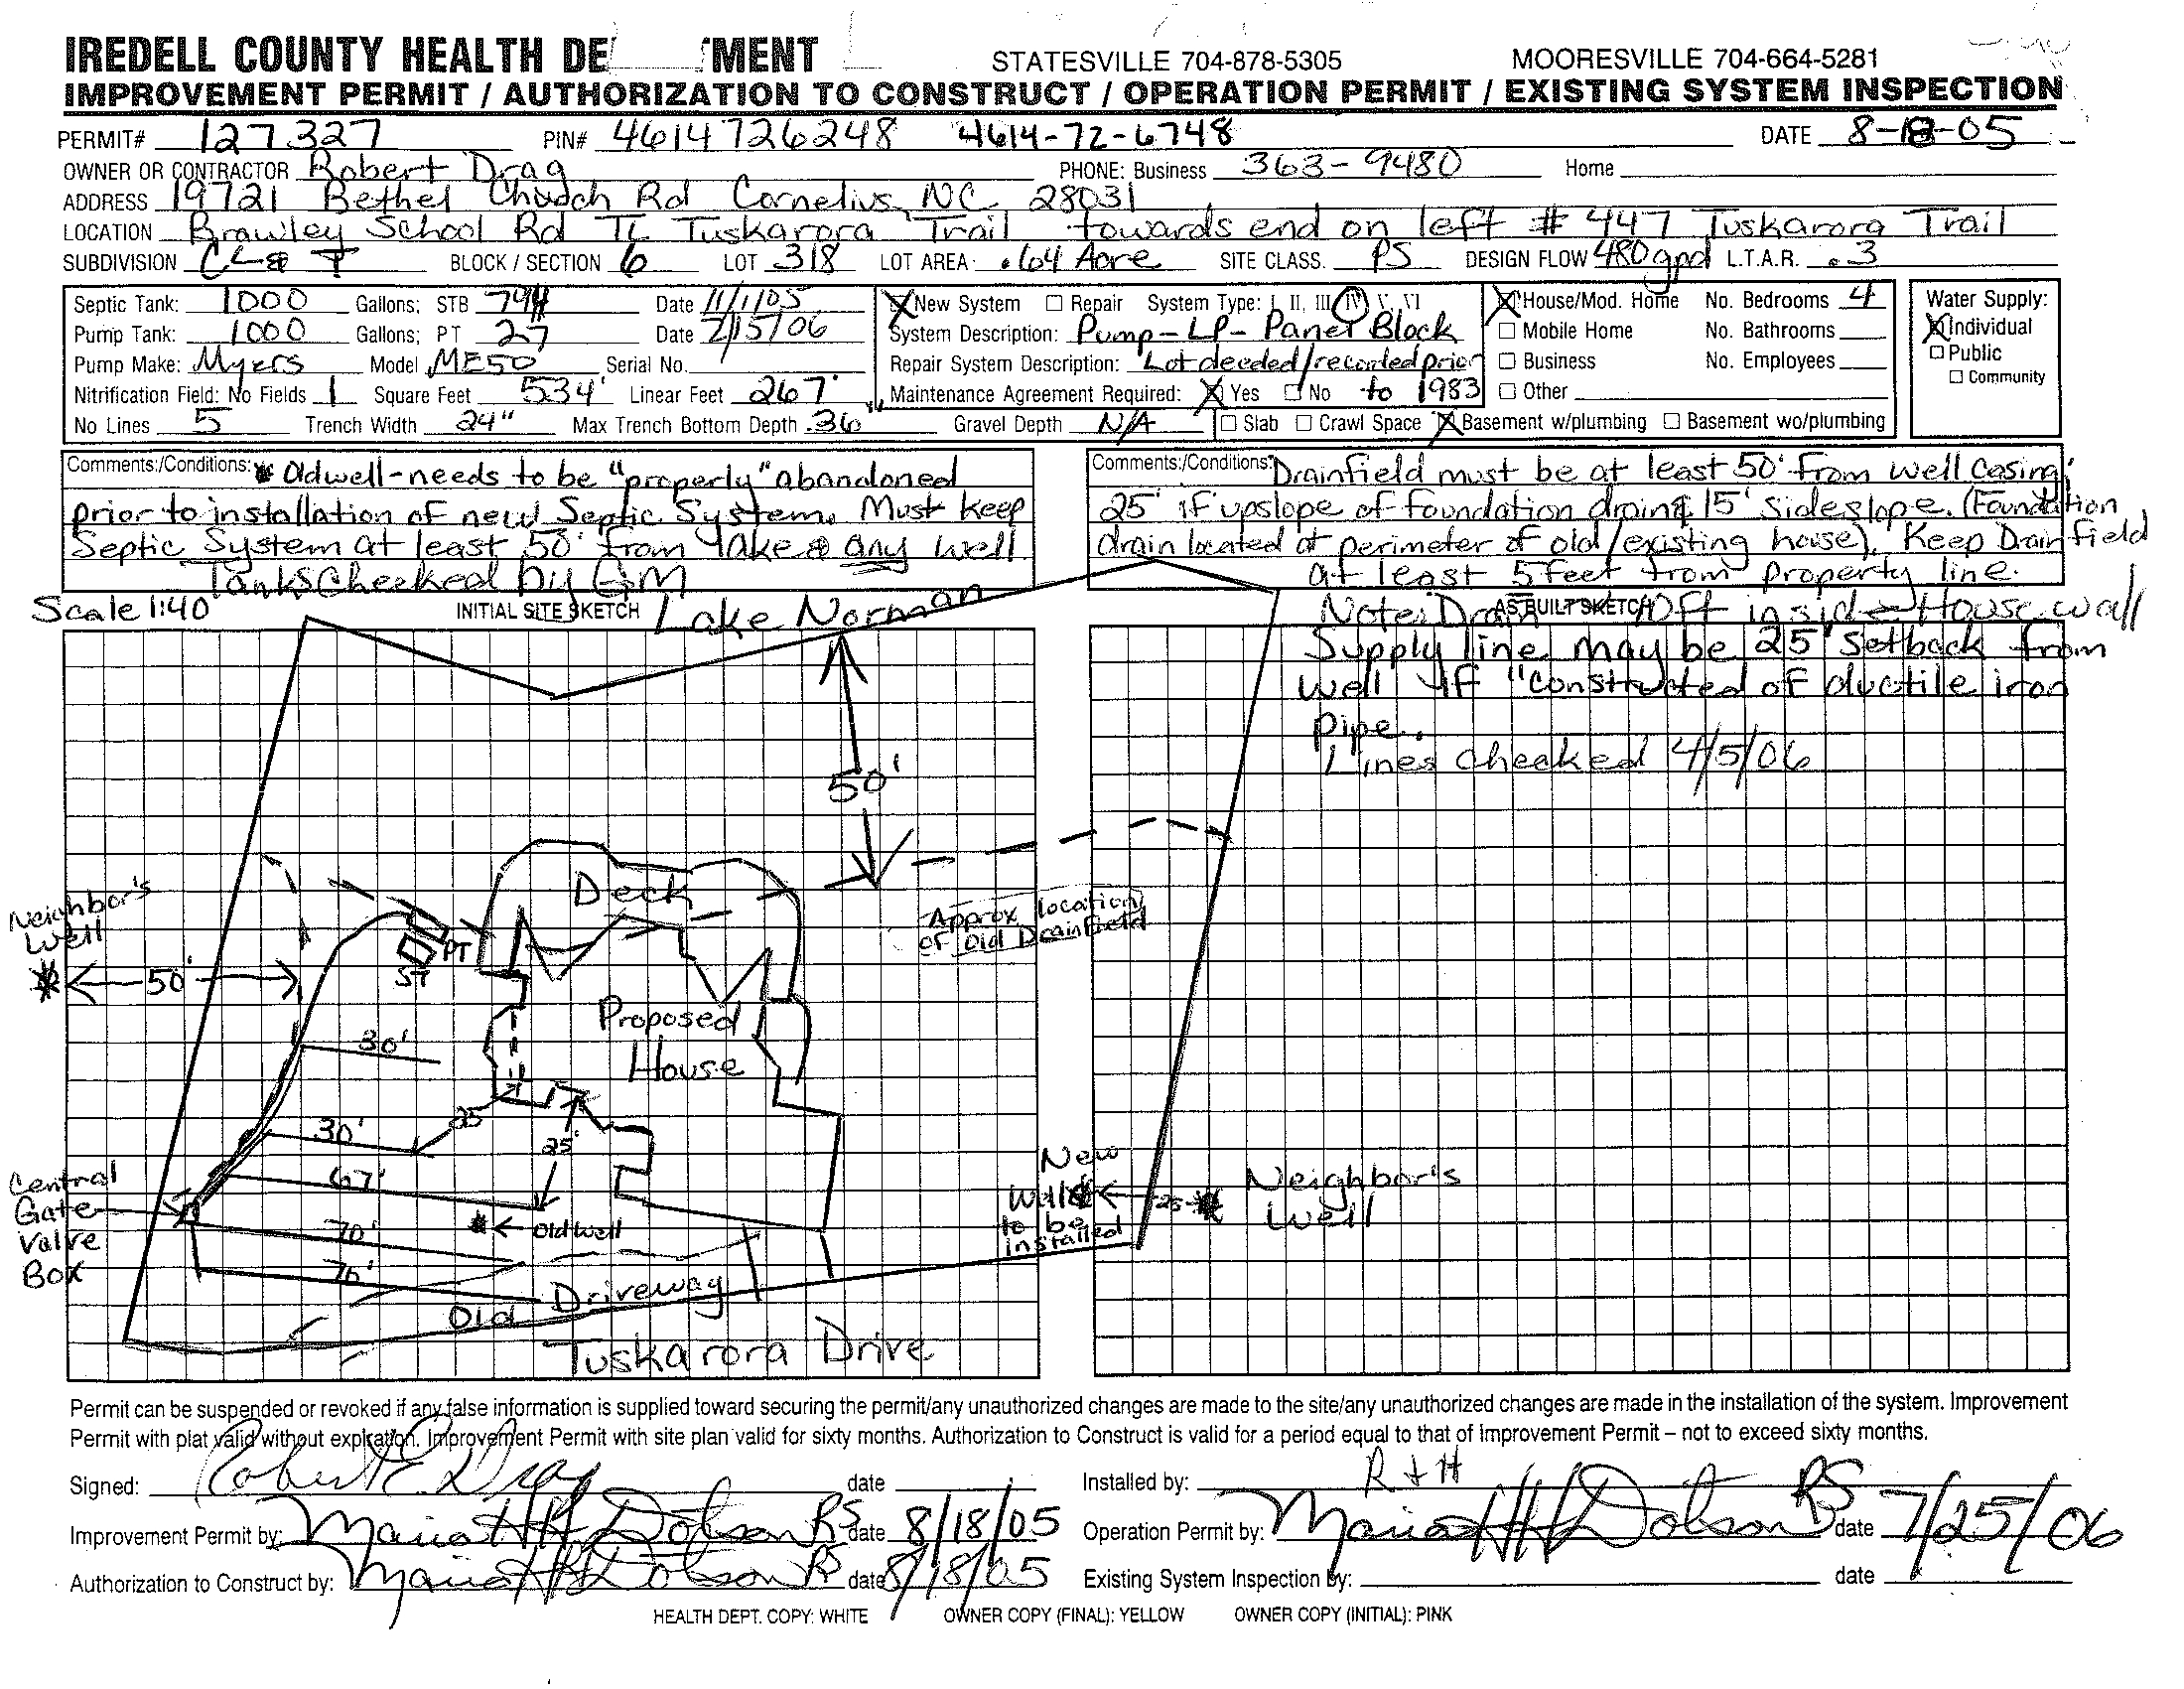 IREDELL COUNTY HEALTH DE MENT STATESVILLE 704-878-5305 MOORESVILLE 704-664-5281
IMPROVEMENT PERMIT / AUTHORIZATION TO CONSTRUCT / OPERATION PERMIT / EXISTING SYSTEM INSPECTION
PERMIT# 127327 PIN# 4614726248 4614-72-6748 DATE 8-18-05
OWNER OR CONTRACTOR Robert Drag PHONE: Business 363-9480 Home
ADDRESS 19721 Bethel Church Rd Cornelius, NC 28031
LOCATION Brawley School Rd TL Tuskarora Trail towards end on left # 447 Tuskarora Trail
SUBDIVISION BLOCK / SECTION 6 LOT 318 LOT AREA .64 Acre SITE CLASS. PS DESIGN FLOW 480gpd L.T.A.R. .3
Septic Tank: 1000 Gallons; STB Date 11/1/05
Pump Tank: 1000 Gallons; PT 27 Date 2/15/06
Pump Make: Myers Model ME50 Serial No.
Nitrification Field: No Fields 1 Square Feet 534' Linear Feet 267'
No Lines 5 Trench Width 24" Max Trench Bottom Depth 36" Gravel Depth N/A
New System Repair System Type: I, II, III, IV, V, VI
System Description: Pump-LP-Panel Block
Repair System Description: Lot deeded/recorded prior
Maintenance Agreement Required: Yes No to 1983
Slab Crawl Space Basement w/plumbing Basement wo/plumbing
House/Mod. Home No. Bedrooms 4
Mobile Home No. Bathrooms
Business No. Employees
Other
Water Supply:
Individual
Public
Community
Comments:/Conditions: * Old well-needs to be "properly" abandoned
prior to installation of new Septic System. Must keep
Septic System at least 50' from lake & any well
Tanks Checked by GM
Comments:/Conditions: Drainfield must be at least 50' from well casing;
25' if upslope of foundation drain & 15' sideslope. (Foundation
drain located at perimeter of old/existing house). Keep Drainfield
at least 5 feet from property line.
Scale 1:40 INITIAL SITE SKETCH Lake Norman
Note: Drain AS BUILT SKETCH Off inside House wall
Supply line may be 25' setback from
well if "constructed of ductile iron
pipe.
Lines checked 4/5/06
50'
Deck
Neighbor's
Well
Approx. location
of Old Drainfield
50'
PT
ST
Proposed
House
30'
25'
30'
25'
67'
Central
Gate
Valve
Box
70'
Old well
76'
Old Driveway
Tuskarora Drive
New
Well
to be
installed
25
Neighbor's
Well
Permit can be suspended or revoked if any false information is supplied toward securing the permit/any unauthorized changes are made to the site/any unauthorized changes are made in the installation of the system. Improvement
Permit with plat valid without expiration. Improvement Permit with site plan valid for sixty months. Authorization to Construct is valid for a period equal to that of Improvement Permit – not to exceed sixty months.
Signed: Robert E. Drag date
Installed by: R + H
Improvement Permit by: H Dobson RS date 8/18/05
Operation Permit by: H Dobson RS date 7/25/06
Authorization to Construct by: H Dobson RS date 8/18/05
Existing System Inspection By: date
HEALTH DEPT. COPY: WHITE OWNER COPY (FINAL): YELLOW OWNER COPY (INITIAL): PINK